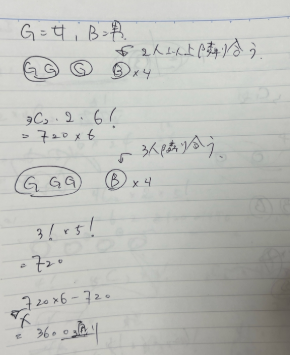 G = 女, B = 男.
2人以上が隣り合う
GG G B × 4
3C2 · 2 · 6!
= 720 × 6
3人が隣り合う
G GG B × 4
3! × 5!
= 720
720×6 - 720
= 3600通り